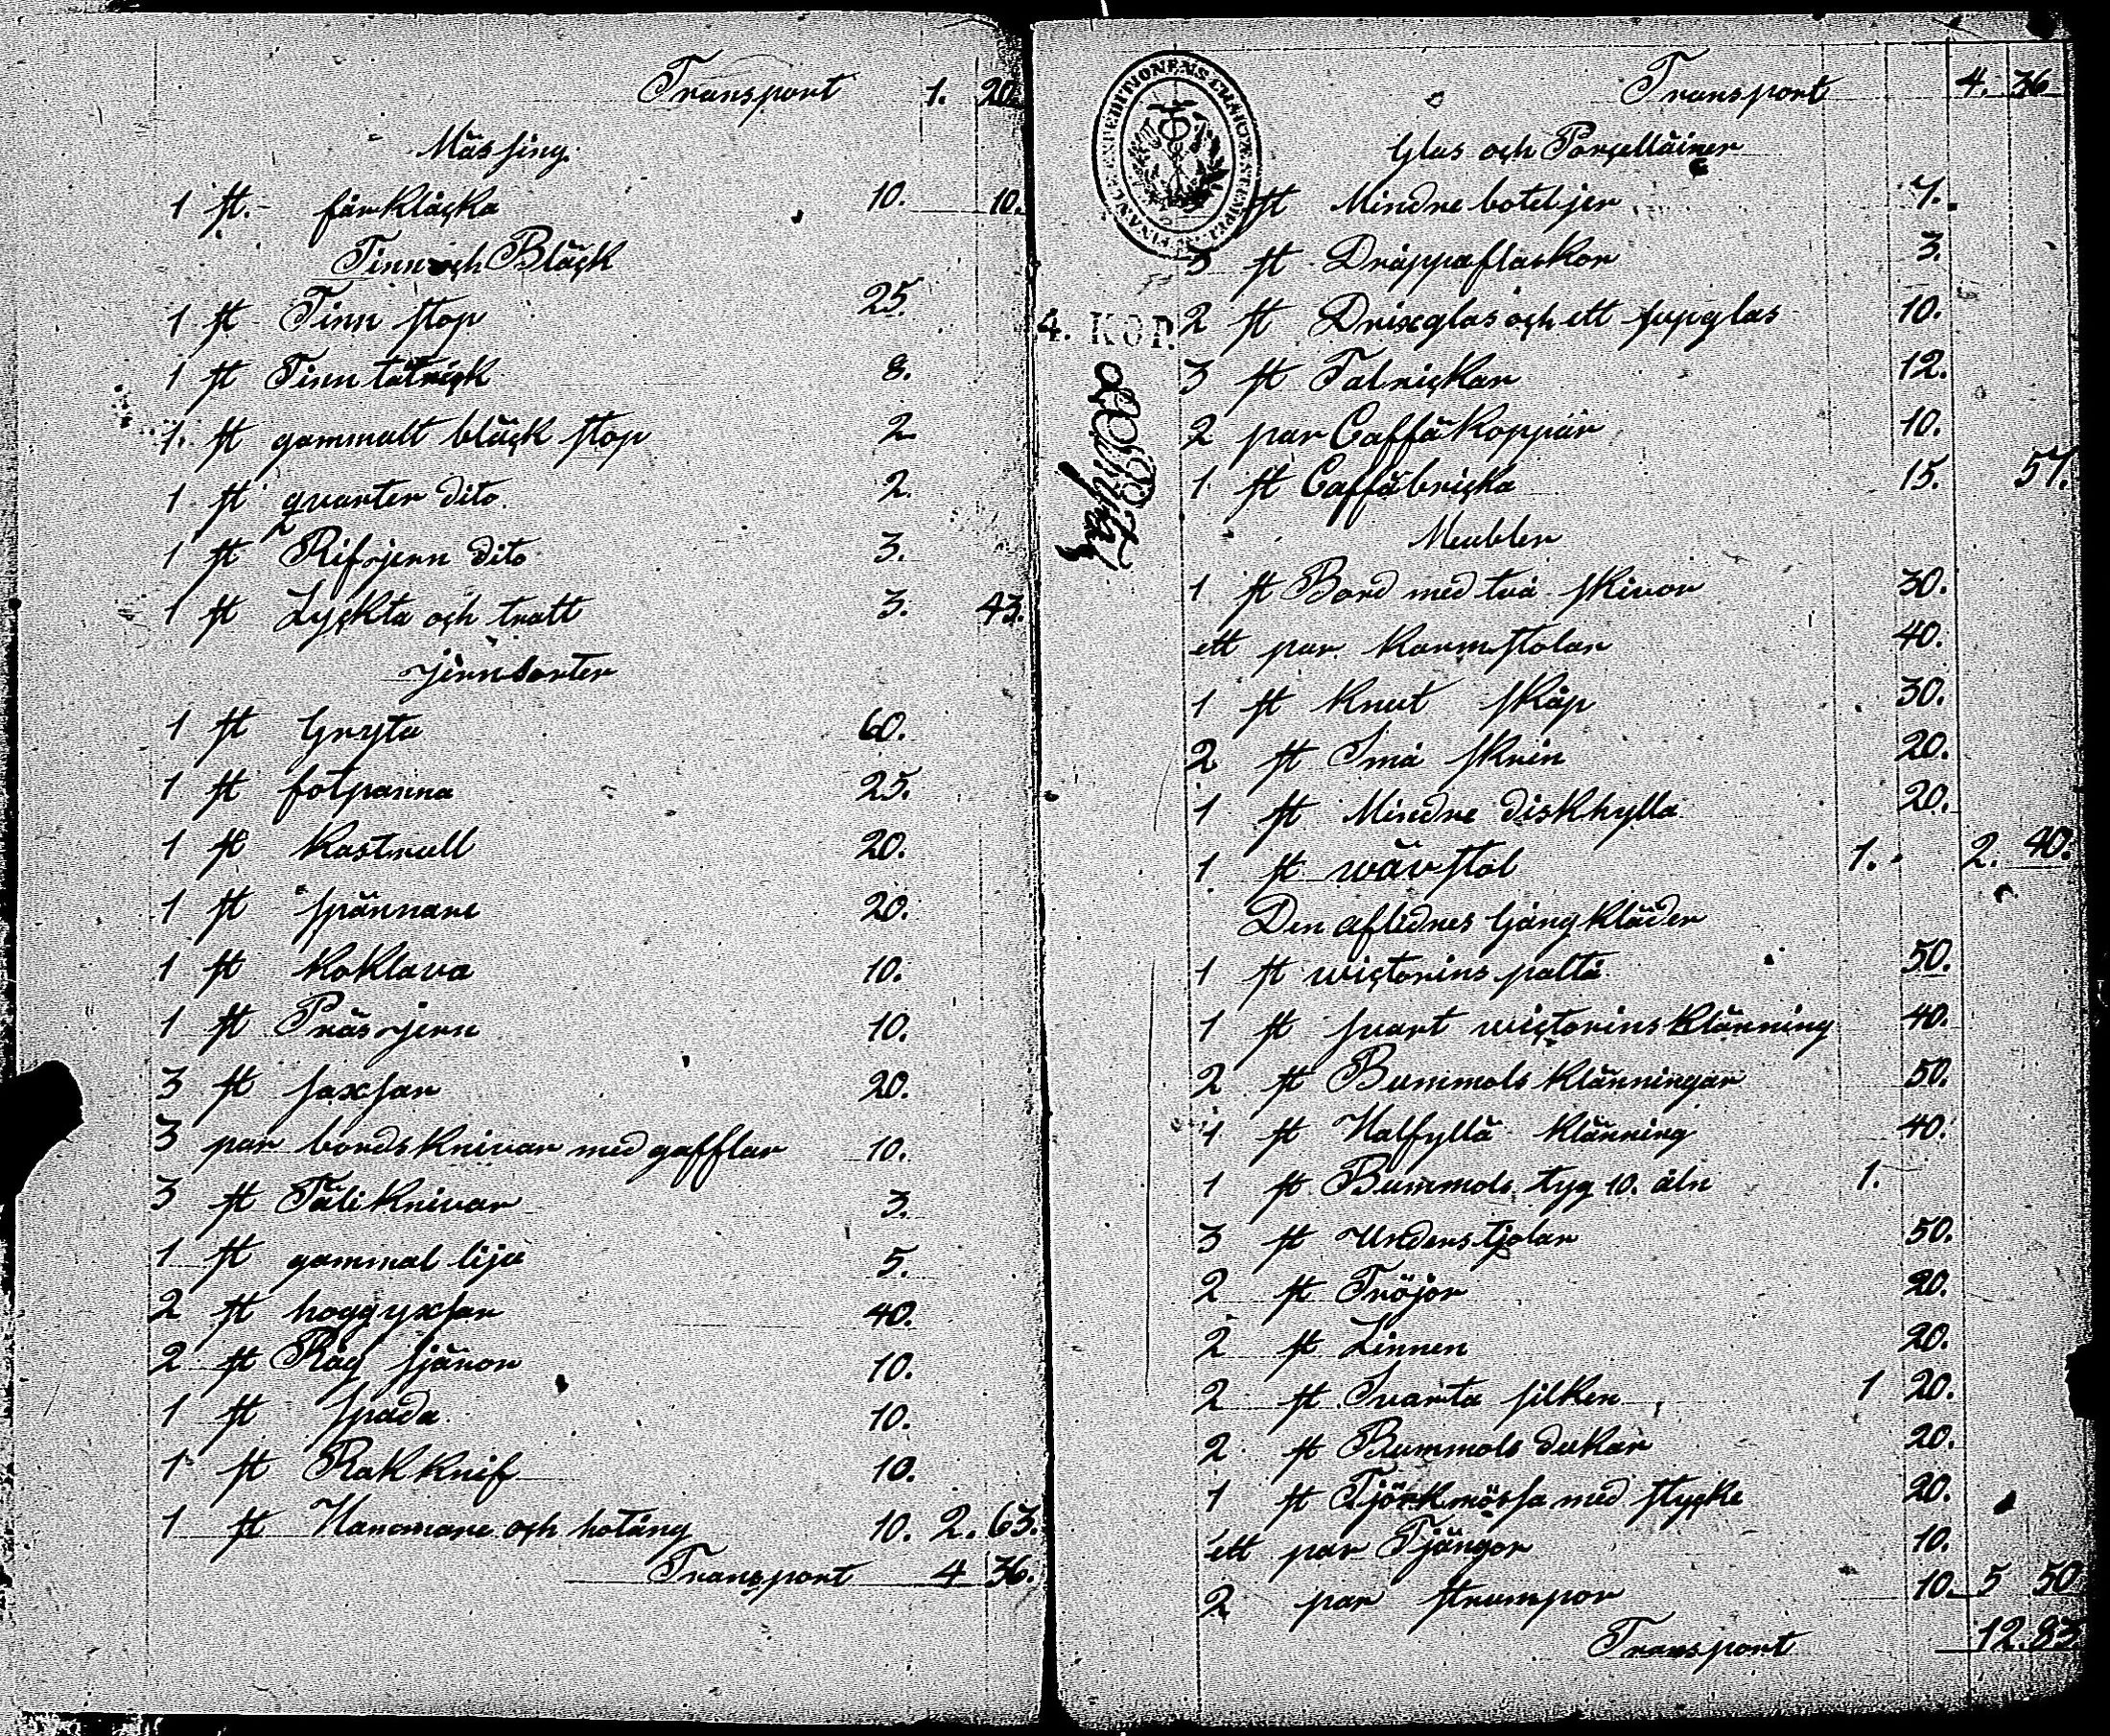 Transport 1. 20.
Mässing.
1 st. färkläcka 10. 10.
Tinn och Bläck
1 st Tinn stop 25.
1 st Tinn tatrick 8.
1. st gammalt bläck stop 2.
1 st qvarter dito. 2.
1 st Rifsjern dito 3.
1 st Lyckta och tratt 3. 43.
jernsorter
1 st Gryta 60.
1 st fotpanna 25.
1 st Kastrull 20.
1 st spännare 20.
1 st Koklava 10.
1 st Präsjern 10.
3 st saxsar 20.
3 par bordsknivar med gafflar 10.
3 st Täliknivar 3.
1 st gammal lija 5.
2 st hoggyxsar 40.
2 st Råg sjäror 10.
1 st spada 10.
1 st Rakknif 10.
1 st Hammare och hotång 10. 2. 63.
Transport 4 36.
Transport 4. 36
Glas och Porcelläiner
st Mindre boteljer 7.
3 st Dräppaflaskor 3.
4. KOP.
2 st Drixglas och ett supglas 10.
3 st Talrickar 12.
2 par Caffäkoppar 10.
1 st Caffäbricka 15. 57.
Meubler
1 st Bord med två skivor 30.
ett par karmstolar 40.
1 st Knut skåp 30.
2 st Små skrin 20.
1 st Mindre diskhylla 20.
1 st wävstol 1. 2. 40.
Den aflidnes Gångkläder
1 st wictorins paltå 50.
1 st svart wictorins klänning 40.
2 st Bummols klänningar 50.
1 st Halfyllä klänning 40.
1 st Bummols tyg 10. äln 1.
3 st Understjolar 50.
2 st Tröjor 20.
2 st Linnen 20.
2 st Svarta silken 1 20.
2 st Bummols dukar 20.
1 st Tjörkmössa med stycke 20.
ett par Tjängor 10.
2 par strumpor 10. 5 50
Transport 12. 83